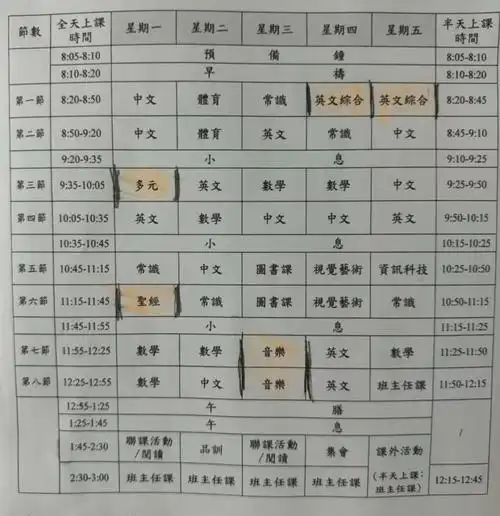 節數 全天上課時間 星期一 星期二 星期三 星期四 星期五 半天上課時間
8:05-8:10 預備鐘 8:05-8:10
8:10-8:20 早禱 8:10-8:20
第一節 8:20-8:50 中文 體育 常識 英文綜合 英文綜合 8:20-8:45
第二節 8:50-9:20 中文 體育 英文 常識 中文 8:45-9:10
9:20-9:35 小息 9:10-9:25
第三節 9:35-10:05 多元 英文 數學 數學 中文 9:25-9:50
第四節 10:05-10:35 英文 數學 中文 中文 英文 9:50-10:15
10:35-10:45 小息 10:15-10:25
第五節 10:45-11:15 常識 中文 圖書課 視覺藝術 資訊科技 10:25-10:50
第六節 11:15-11:45 聖經 常識 圖書課 視覺藝術 常識 10:50-11:15
11:45-11:55 小息 11:15-11:25
第七節 11:55-12:25 數學 數學 音樂 英文 數學 11:25-11:50
第八節 12:25-12:55 數學 中文 音樂 英文 班主任課 11:50-12:15
12:55-1:25 午膳 /
1:25-1:45 午息
1:45-2:30 聯課活動/閱讀 品訓 聯課活動/閱讀 集會 課外活動
2:30-3:00 班主任課 班主任課 班主任課 班主任課 (半天上課:班主任課) 12:15-12:45